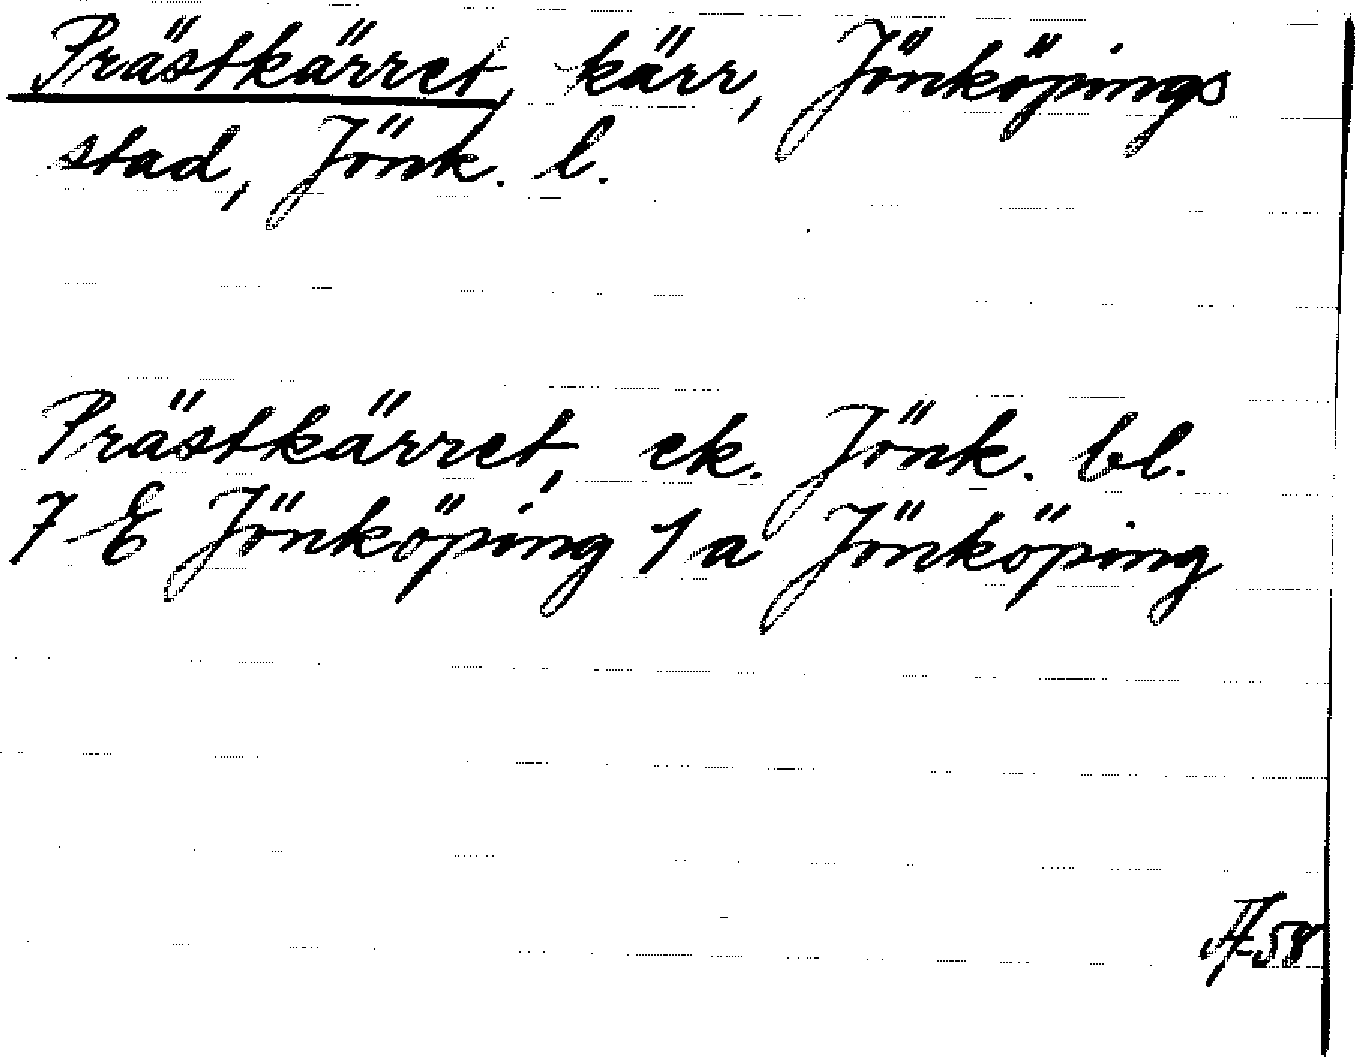 Prästkärret, kärr, Jönköpings
stad, Jönk. l.
Prästkärret, ek. Jönk. bl.
7 E Jönköping 1 a Jönköping
58